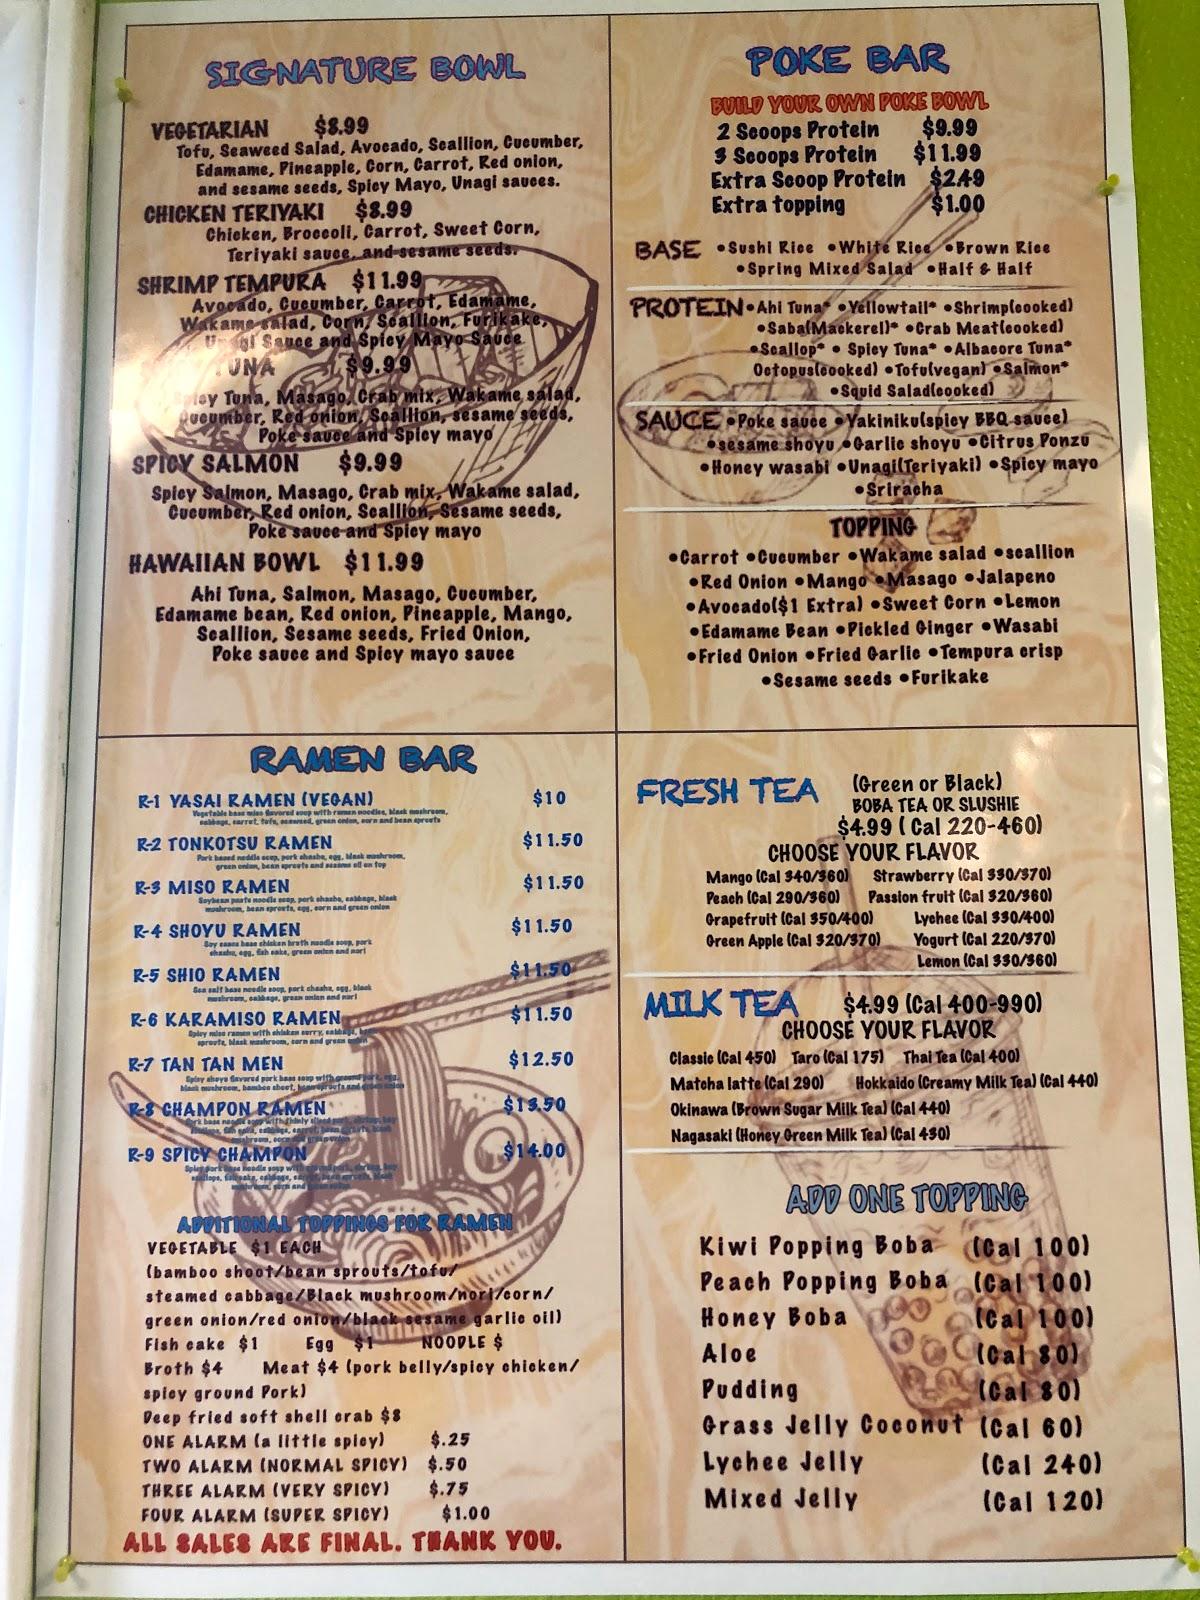 SIGNATURE BOWL
VEGETARIAN $8.99
Tofu, Seaweed Salad, Avocado, Scallion, Cucumber,
Edamame, Pineapple, Corn, Carrot, Red onion,
and sesame seeds, Spicy Mayo, Unagi sauces.
CHICKEN TERIYAKI $8.99
Chicken, Broccoli, Carrot, Sweet Corn,
Teriyaki sauce, and sesame seeds.
SHRIMP TEMPURA $11.99
Avocado, Cucumber, Carrot, Edamame,
Wakame salad, Corn, Scallion, Furikake,
Unagi Sauce and Spicy Mayo Sauce
TUNA $9.99
Spicy Tuna, Masago, Crab mix, Wakame salad,
Cucumber, Red onion, Scallion, sesame seeds,
Poke sauce and Spicy mayo
SPICY SALMON $9.99
Spicy Salmon, Masago, Crab mix, Wakame salad,
Cucumber, Red onion, Scallion, Sesame seeds,
Poke sauce and Spicy mayo
HAWAIIAN BOWL $11.99
Ahi Tuna, Salmon, Masago, Cucumber,
Edamame bean, Red onion, Pineapple, Mango,
Scallion, Sesame seeds, Fried Onion,
Poke sauce and Spicy mayo sauce
POKE BAR
BUILD YOUR OWN POKE BOWL
2 Scoops Protein $9.99
3 Scoops Protein $11.99
Extra Scoop Protein $2.49
Extra topping $1.00
BASE •Sushi Rice •White Rice •Brown Rice
•Spring Mixed Salad •Half & Half
PROTEIN •Ahi Tuna* •Yellowtail* •Shrimp(cooked)
•Saba(Mackerel)* •Crab Meat(cooked)
•Scallop* • Spicy Tuna* •Albacore Tuna*
Octopus(cooked) •Tofu(vegan) •Salmon*
•Squid Salad(cooked)
SAUCE •Poke sauce •Yakiniku(spicy BBQ sauce)
•sesame shoyu •Garlic shoyu •Citrus Ponzu
•Honey wasabi •Unagi(Teriyaki) •Spicy mayo
•Sriracha
TOPPING
•Carrot •Cucumber •Wakame salad •scallion
•Red Onion •Mango •Masago •Jalapeno
•Avocado($1 Extra) •Sweet Corn •Lemon
•Edamame Bean •Pickled Ginger •Wasabi
•Fried Onion •Fried Garlic •Tempura crisp
•Sesame seeds •Furikake
RAMEN BAR
R-1 YASAI RAMEN (VEGAN) $10
Vegetable base miso flavored soup with ramen noodles, black mushroom,
cabbage, carrot, tofu, seaweed, green onion, corn and bean sprouts
R-2 TONKOTSU RAMEN $11.50
Pork based noddle soup, pork chashu, egg, black mushroom,
green onion, bean sprouts and sesame oil on top
R-3 MISO RAMEN $11.50
Soybean paste noodle soup, pork chashu, cabbage, black
mushroom, bean sprouts, egg, corn and green onion
R-4 SHOYU RAMEN $11.50
Soy sauce base chicken broth noodle soup, pork
chashu, egg, fish cake, green onion and nori
R-5 SHIO RAMEN $11.50
Sea salt base noodle soup, pork chashu, egg, black
mushroom, cabbage, green onion and nori
R-6 KARAMISO RAMEN $11.50
Spicy miso ramen with chicken curry, cabbage, bean
sprouts, black mushroom, corn and green onion
R-7 TAN TAN MEN $12.50
Spicy shoyu flavored pork base soup with ground pork, egg,
black mushroom, bamboo shoot, bean sprouts and green onion
R-8 CHAMPON RAMEN $13.50
Pork base noodle soup with thinly sliced pork, shrimp, bay
scallops, fish cake, cabbage, carrot, bean sprouts, black
mushroom, corn and green onion
R-9 SPICY CHAMPON $14.00
Spicy pork base noodle soup with ground pork, shrimp, bay
scallops, fish cake, cabbage, carrot, bean sprouts, black
mushroom, corn and green onion
ADDITIONAL TOPPINGS FOR RAMEN
VEGETABLE $1 EACH
(bamboo shoot/bean sprouts/tofu/
steamed cabbage/Black mushroom/nori/corn/
green onion/red onion/black sesame garlic oil)
Fish cake $1 Egg $1 NOODLE $
Broth $4 Meat $4 (pork belly/spicy chicken/
spicy ground Pork)
Deep fried soft shell crab $8
ONE ALARM (a little spicy) $.25
TWO ALARM (NORMAL SPICY) $.50
THREE ALARM (VERY SPICY) $.75
FOUR ALARM (SUPER SPICY) $1.00
ALL SALES ARE FINAL. THANK YOU.
FRESH TEA (Green or Black)
BOBA TEA OR SLUSHIE
$4.99 ( Cal 220-460)
CHOOSE YOUR FLAVOR
Mango (Cal 340/360) Strawberry (Cal 330/370)
Peach (Cal 290/360) Passion fruit (Cal 320/360)
Grapefruit (Cal 350/400) Lychee (Cal 330/400)
Green Apple (Cal 320/370) Yogurt (Cal 220/370)
Lemon (Cal 330/360)
MILK TEA $4.99 (Cal 400-990)
CHOOSE YOUR FLAVOR
Classic (Cal 450) Taro (Cal 175) Thai Tea (Cal 400)
Matcha latte (Cal 290) Hokkaido (Creamy Milk Tea) (Cal 440)
Okinawa (Brown Sugar Milk Tea) (Cal 440)
Nagasaki (Honey Green Milk Tea) (Cal 430)
ADD ONE TOPPING
Kiwi Popping Boba (Cal 100)
Peach Popping Boba (Cal 100)
Honey Boba (Cal 100)
Aloe (Cal 80)
Pudding (Cal 80)
Grass Jelly Coconut (Cal 60)
Lychee Jelly (Cal 240)
Mixed Jelly (Cal 120)